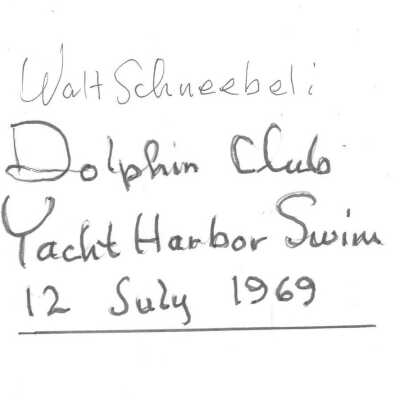 Walt Schneebeli
Dolphin Club
Yacht Harbor Swim
12 July 1969